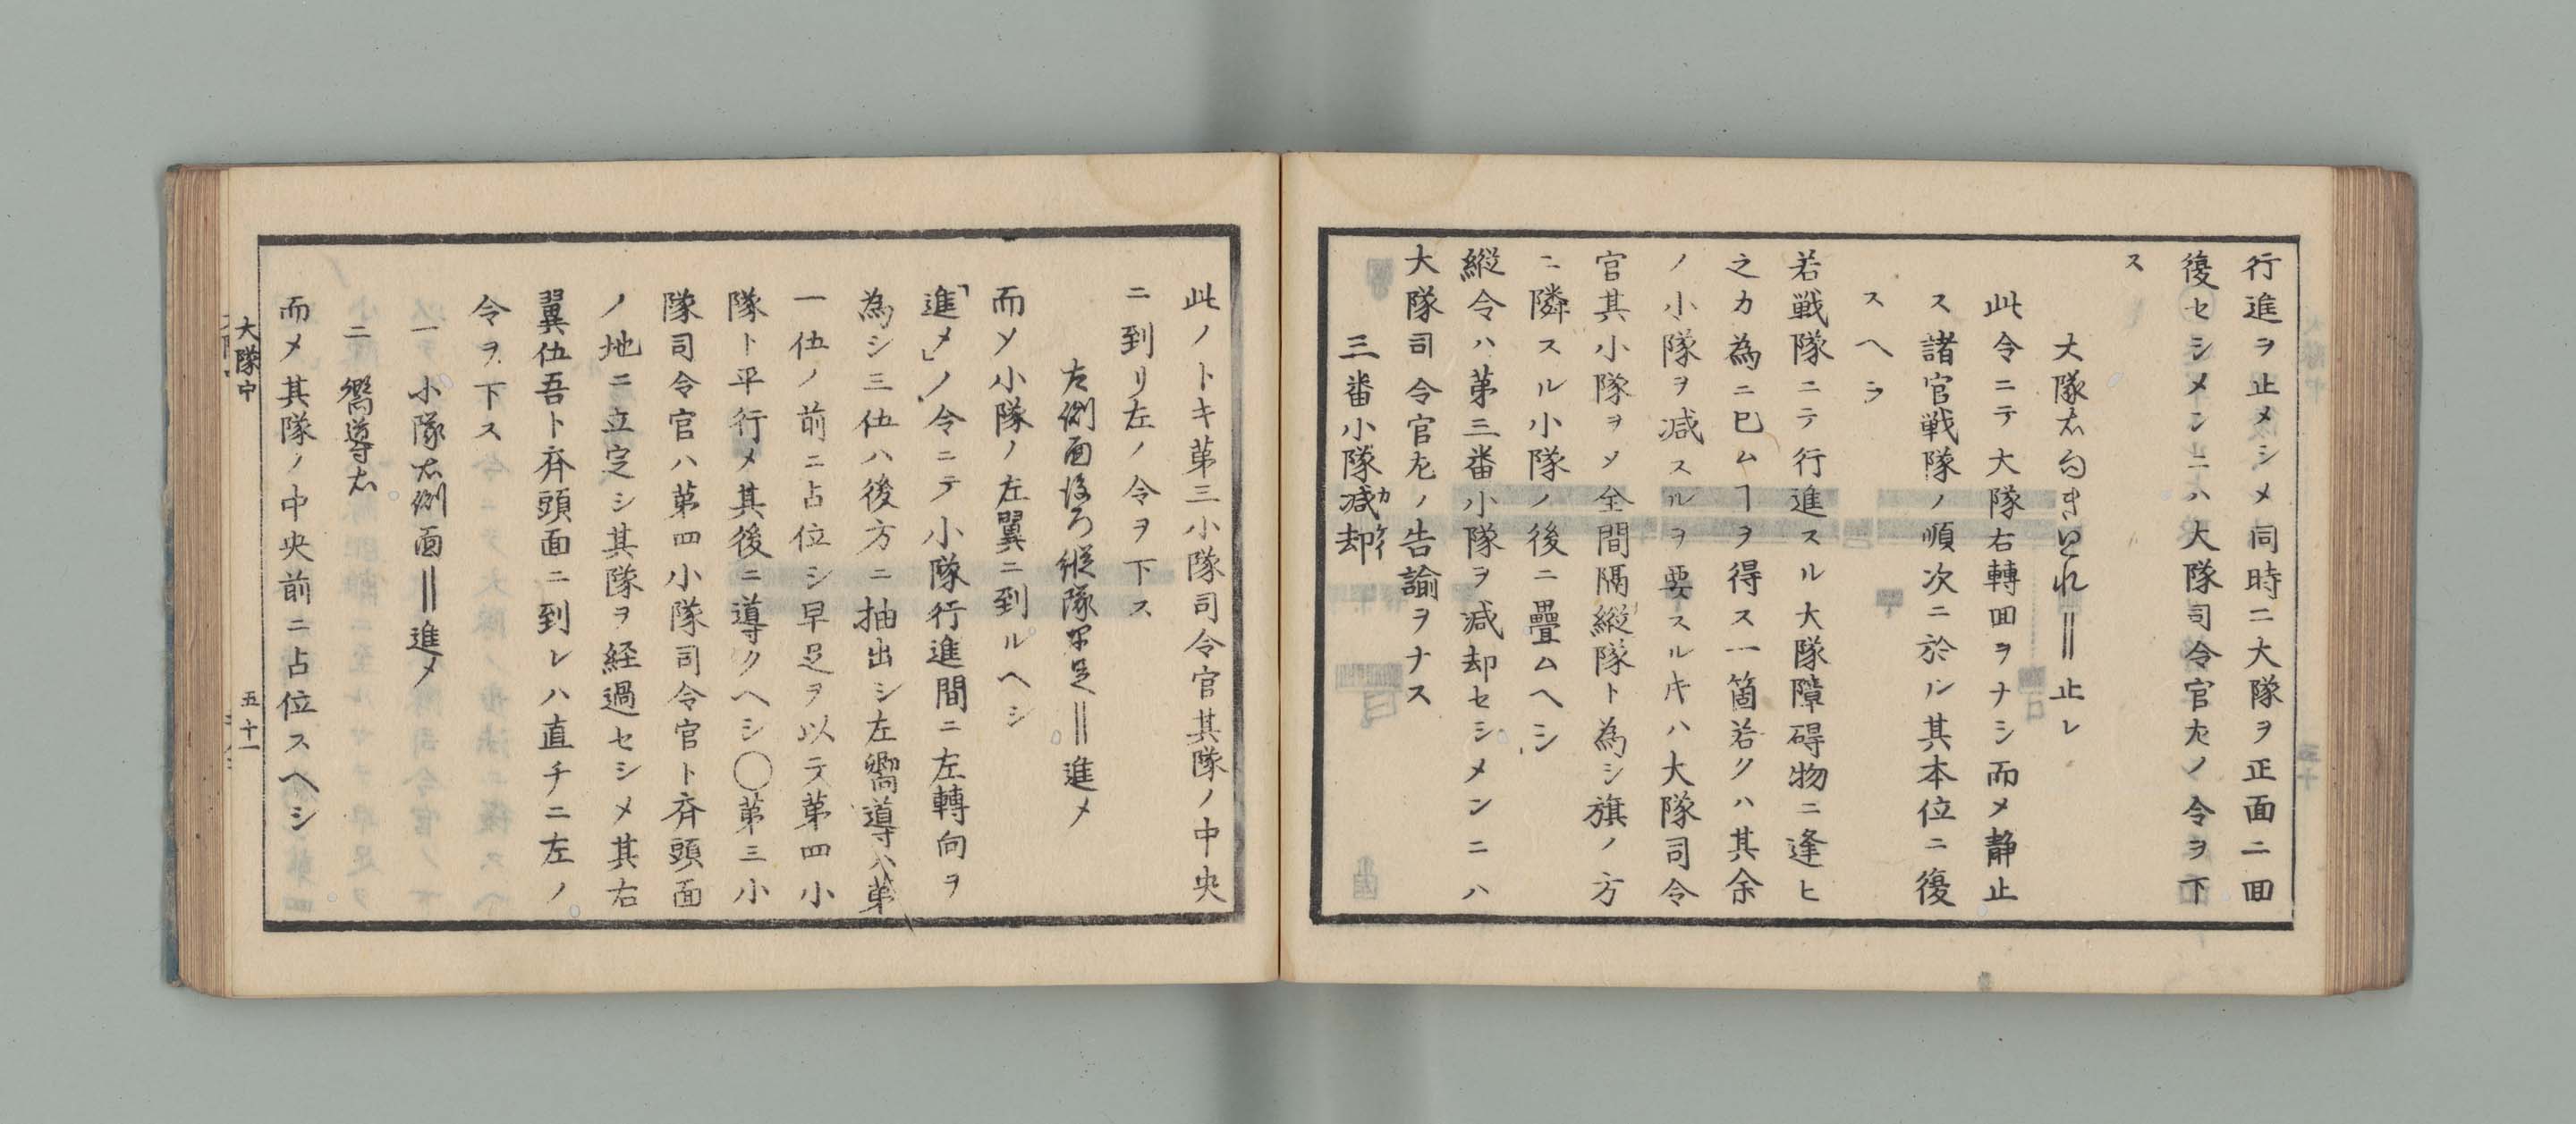 行進ヲ止メシメ同時ニ大隊ヲ正面ニ囬
復セシメンニハ大隊司令官左ノ令ヲ下
ス
大隊右向きとれ‖止レ
此令ニテ大隊右轉囬ヲナシ而メ静止
ス諸官戦隊ノ順次ニ於ル其本位ニ復
スヘシ
若戦隊ニテ行進スル大隊障碍物ニ逢ヒ
之カ為ニ已ムヿヲ得ス一箇若クハ其余
ノ小隊ヲ減スルヲ要スルキハ大隊司令
官其小隊ヲメ全間隔縦隊ト為シ旗ノ方
ニ隣スル小隊ノ後ニ疊ムヘシ
縦令ハ第三番小隊ヲ減却セシメンニハ
大隊司令官左ノ告諭ヲナス
三番小隊減却
此ノトキ第三小隊司令官其隊ノ中央
ニ到リ左ノ令ヲ下ス
左側面後ろ縦隊早足‖進メ
而メ小隊ノ左翼ニ到ルヘシ
「進メ」ノ令ニテ小隊行進間ニ左轉向ヲ
為シ三伍ハ後方ニ抽出シ左嚮導ハ第
一伍ノ前ニ占位シ早足ヲ以テ第四小
隊ト平行メ其後ニ導クヘシ◯第三小
隊司令官ハ第四小隊司令官ト斉頭面
ノ地ニ立定シ其隊ヲ経過セシメ其右
翼伍吾ト斉頭面ニ到レハ直チニ左ノ
令ヲ下ス
一 小隊右側面‖進メ
二 嚮導右
而メ其隊ノ中央前ニ占位スヘシ
大隊中 五十一